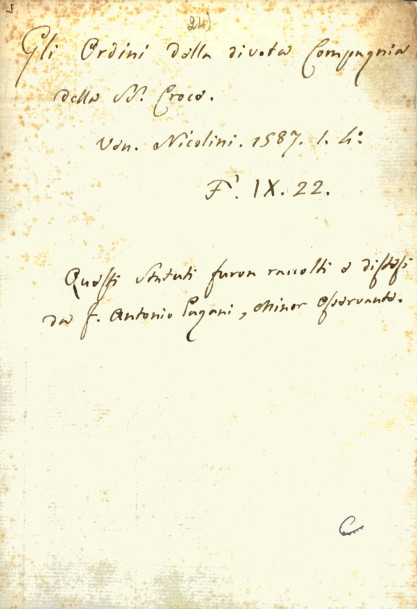 24)
Gli Ordini della divota Compagnia
della S. Croce.
Ven. Nicolini. 1587. 1. 4°
F. IX. 22.
Questi Statuti furon raccolti e distesi
da f. Antonio Pagani, Minor Osservante.